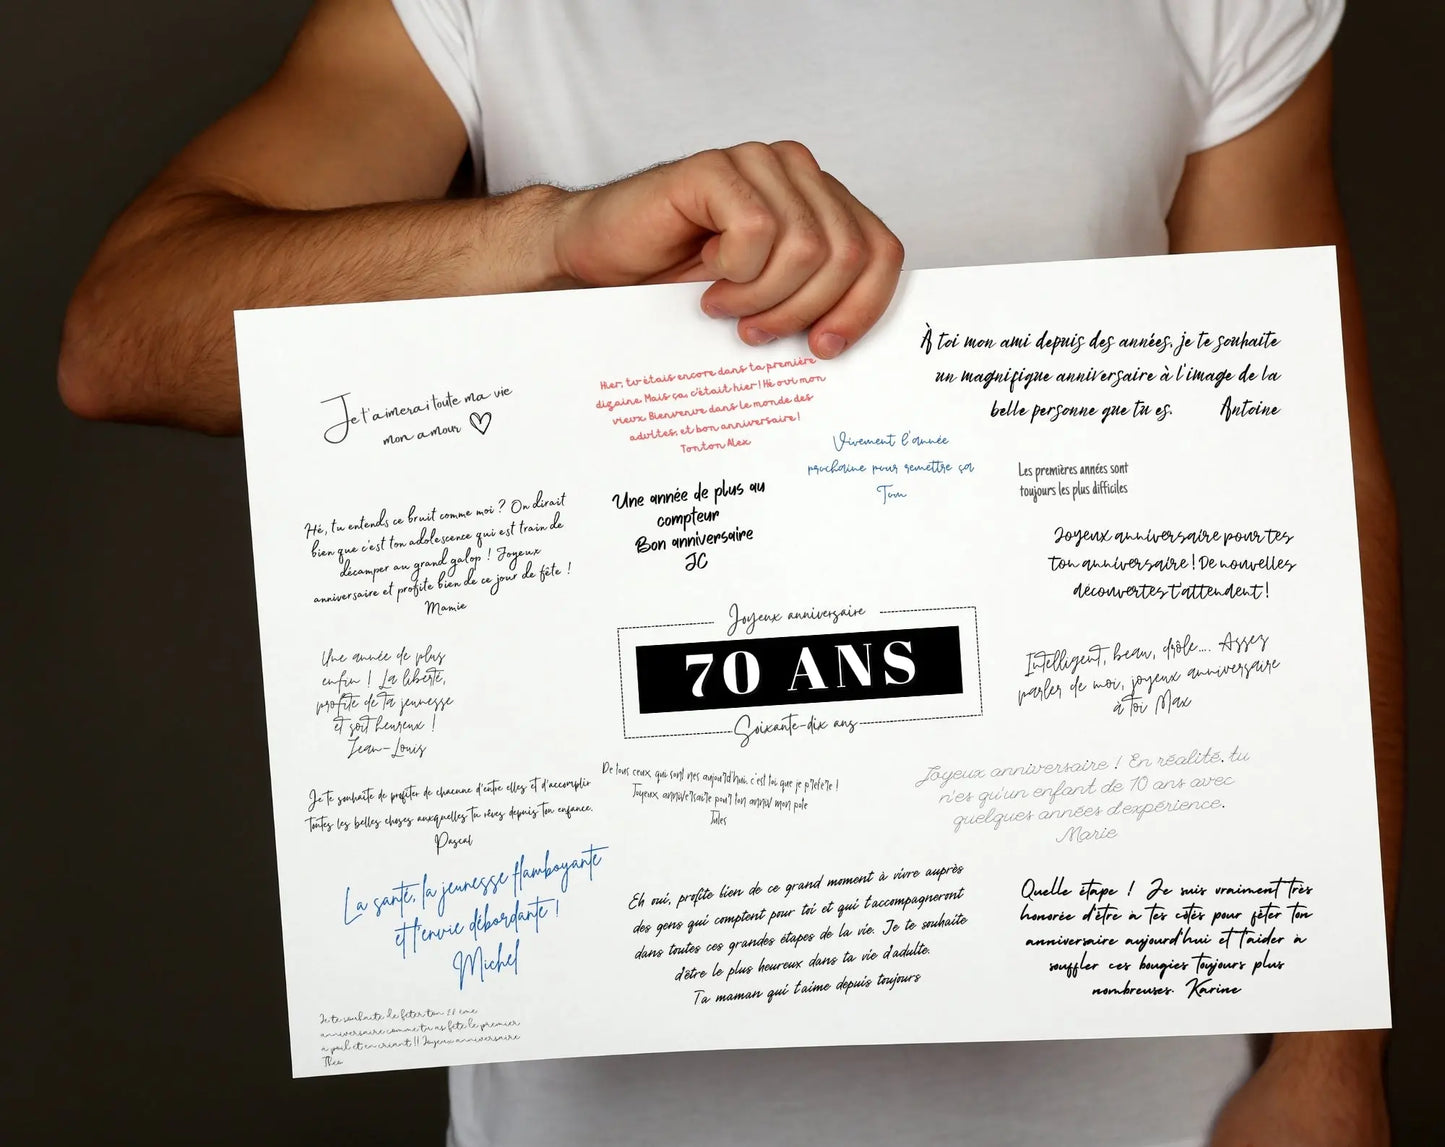 Je t'aimerai toute ma vie
mon amour
Hier, tu étais encore dans ta première
dizaine. Mais ça, c'était hier ! Hé oui mon
vieux. Bienvenue dans le monde des
adultes, et bon anniversaire !
Tonton Alex
À toi mon ami depuis des années, je te souhaite
un magnifique anniversaire à l'image de la
belle personne que tu es. Antoine
Vivement l'année
prochaine pour remettre ça
Tom
Les premières années sont
toujours les plus difficiles
Hé, tu entends ce bruit comme moi ? On dirait
bien que c'est ton adolescence qui est train de
décamper au grand galop ! Joyeux
anniversaire et profite bien de ce jour de fête !
Mamie
Une année de plus au
compteur
Bon anniversaire
JC
Joyeux anniversaire pour tes
ton anniversaire ! De nouvelles
découvertes t'attendent !
Joyeux anniversaire
70 ANS
Soixante-dix ans
Une année de plus
enfin ! La liberté,
profite de ta jeunesse
et soit heureux !
Jean-Louis
Intelligent, beau, drôle.... Assez
parler de moi, joyeux anniversaire
à toi Max
De tous ceux qui sont nés aujourd'hui, c'est toi que je préfère !
Joyeux anniversaire pour ton anniv mon pote
Jules
Joyeux anniversaire ! En réalité, tu
n'es qu'un enfant de 10 ans avec
quelques années d'expérience.
Marie
Je te souhaite de profiter de chacune d'entre elles et d'accomplir
toutes les belles choses auxquelles tu rêves depuis ton enfance.
Pascal
La santé, la jeunesse flamboyante
et l'envie débordante !
Michel
Eh oui, profite bien de ce grand moment à vivre auprès
des gens qui comptent pour toi et qui t'accompagneront
dans toutes ces grandes étapes de la vie. Je te souhaite
d'être le plus heureux dans ta vie d'adulte.
Ta maman qui t'aime depuis toujours
Quelle étape ! Je suis vraiment très
honorée d'être à tes côtés pour fêter ton
anniversaire aujourd'hui et t'aider à
souffler ces bougies toujours plus
nombreuses. Karine
Je te souhaite de fêter ton ème
anniversaire comme tu as fêté le premier
à poil et en criant !! Joyeux anniversaire
Théo